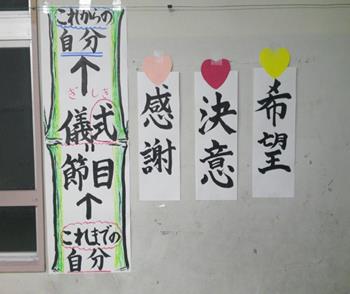 これからの
自分
ぎしき
儀式
節目
これまでの
自分
感謝
決意
希望